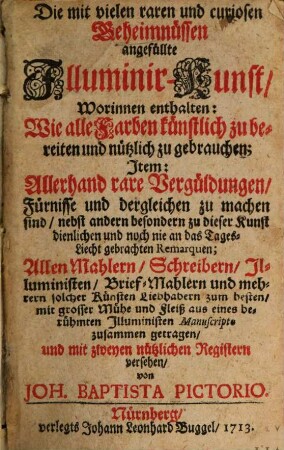 Die mit vielen raren und curiosen
Geheimnüssen
angefüllte
Illuminir-Kunst/
Worinnen enthalten:
Wie alle Farben künstlich zu be-
reiten und nützlich zu gebrauchen;
Item:
Allerhand rare Vergüldungen/
Fürnisse und dergleichen zu machen
sind/ nebst andern besondern zu dieser Kunst
dienlichen und noch nie an das Tages-
Liecht gebrachten Remarquen;
Allen Mahlern/ Schreibern/ Il-
luministen/ Brief-Mahlern und meh-
rern solcher Künsten Liebhabern zum besten/
mit grosser Mühe und Fleiß aus eines be-
rühmten Illuministen Manuscripto
zusammen getragen/
und mit zweyen nützlichen Registern
versehen/
von
JOH. BAPTISTA PICTORIO.
Nürnberg/
verlegts Johann Leonhard Buggel/ 1713.